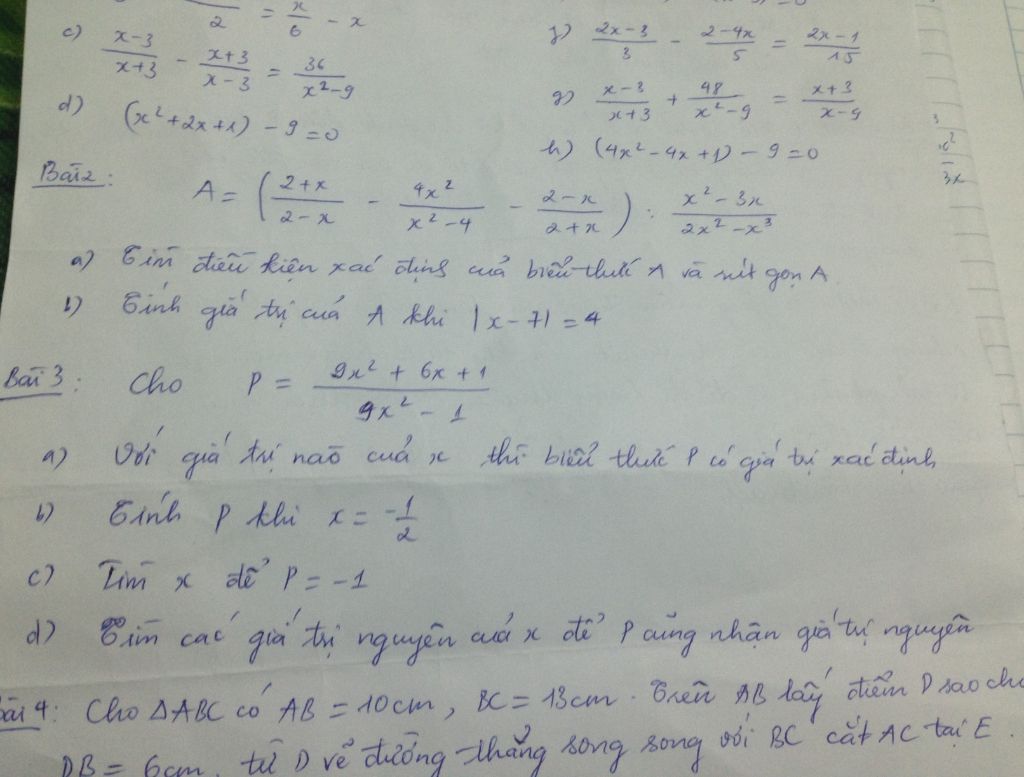 2 = x/6 - x
c) (x-3)/(x+3) - (x+3)/(x-3) = 36/(x²-9)
f) (2x-3)/3 - (2-4x)/5 = (2x-1)/15
d) (x²+2x+1) - 9 = 0
g) (x-3)/(x+3) + 48/(x²-9) = (x+3)/(x-9)
h) (4x²-4x+1) - 9 = 0
Bài 2: A = ( (2+x)/(2-x) - 4x²/(x²-4) - (2-x)/(2+x) ) : (x²-3x)/(2x²-x³)
a) Tìm điều kiện xác định của biểu thức A và rút gọn A.
b) Tính giá trị của A khi |x-7| = 4
Bài 3: Cho P = (9x² + 6x + 1)/(9x² - 1)
a) Với giá trị nào của x thì biểu thức P có giá trị xác định
b) Tính P khi x = -1/2
c) Tìm x để P = -1
d) Tìm các giá trị nguyên của x để P cũng nhận giá trị nguyên
Bài 4: Cho ΔABC có AB = 10cm, BC = 13cm. Trên AB lấy điểm D sao cho
DB = 6cm, từ D vẽ đường thẳng song song với BC cắt AC tại E.